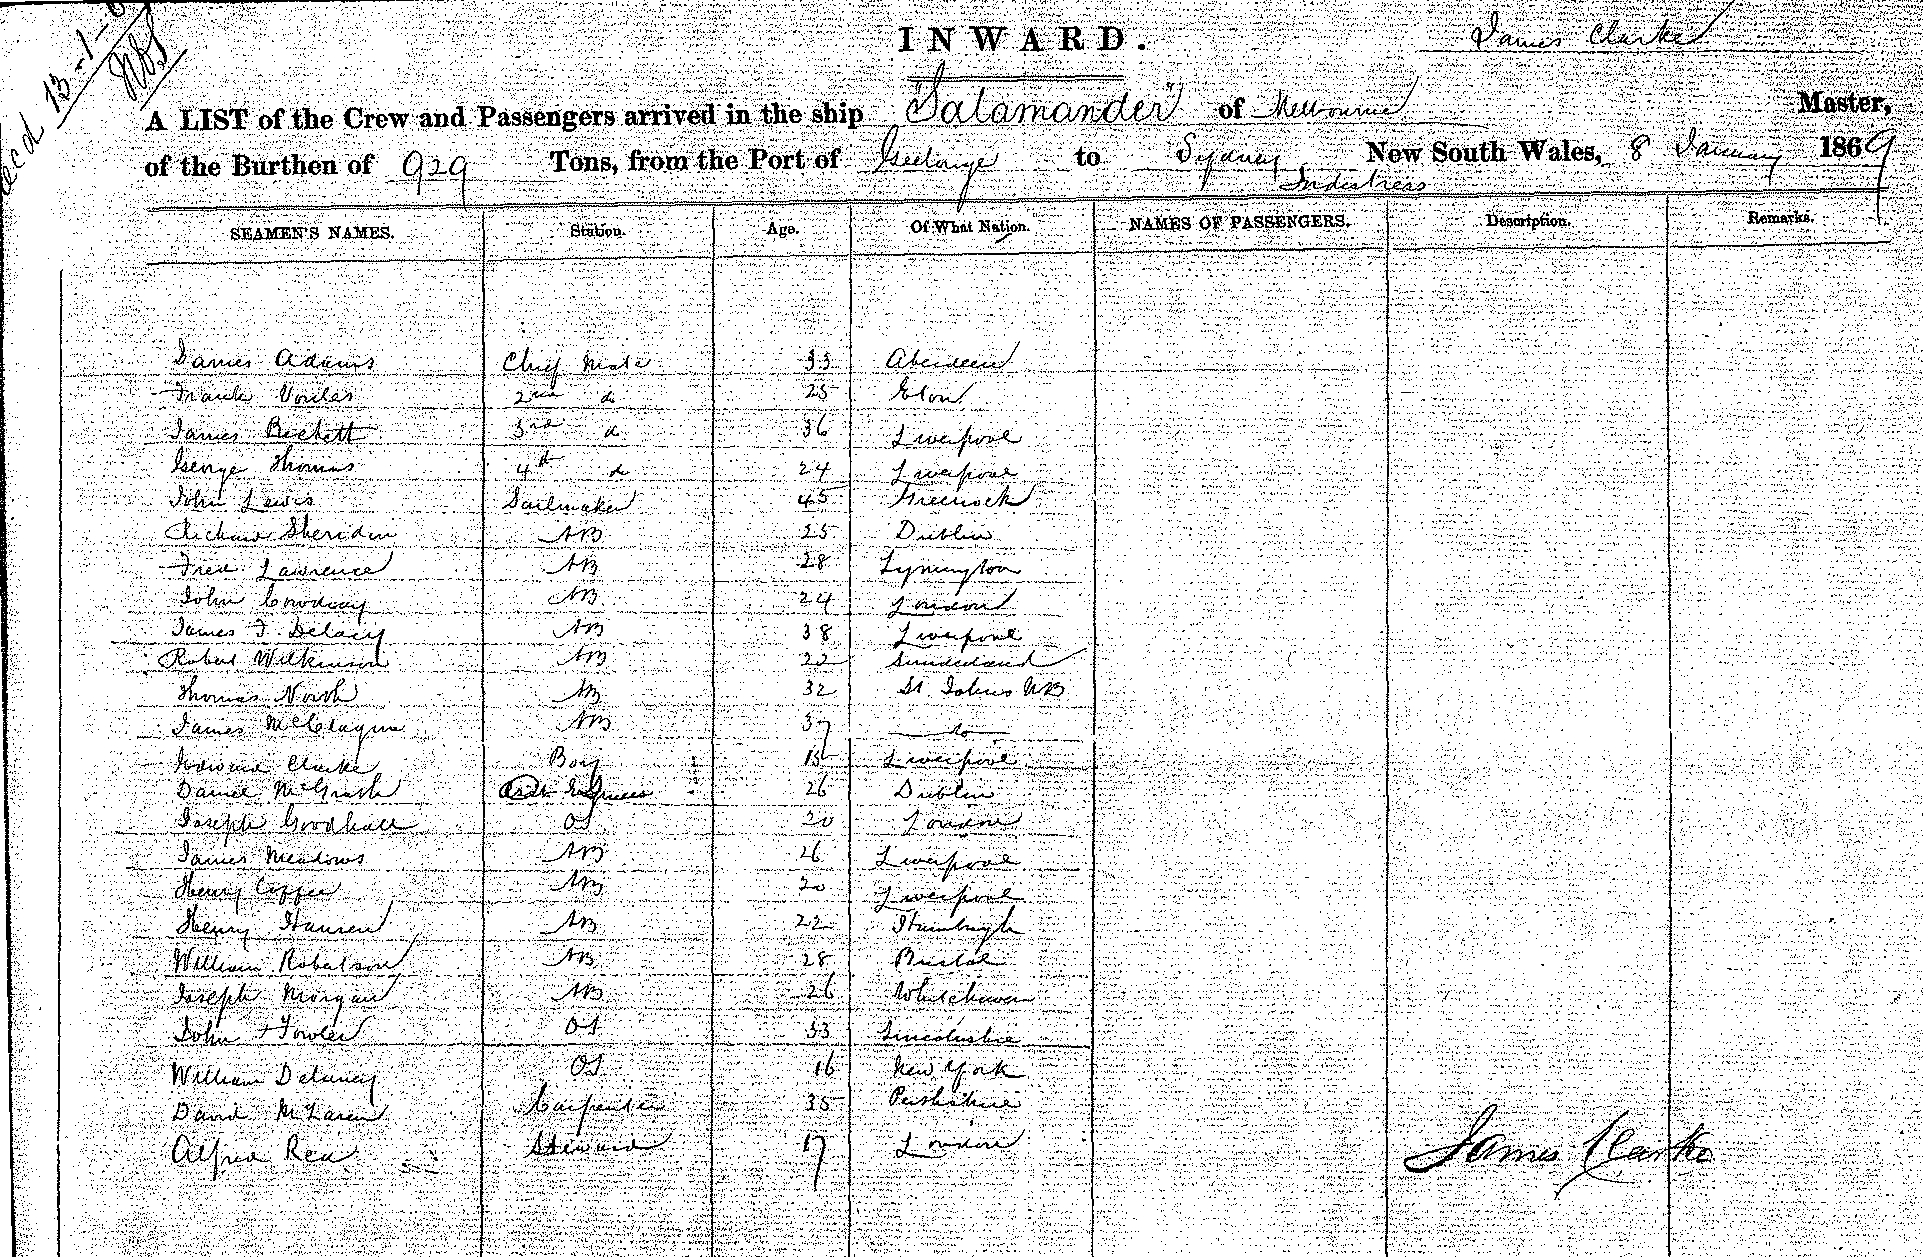 INWARD.
James Clarke
13-1-6
A LIST of the Crew and Passengers arrived in the ship "Salamander" of Melbourne Master,
of the Burthen of 929 Tons, from the Port of Geelong to Sydney New South Wales, 8 January 1869
In distress
SEAMEN'S NAMES. Station. Age. Of What Nation. NAMES OF PASSENGERS. Description. Remarks.
James Adams Chief Mate 33 Aberdeen
Frank 2nd do 25 Eton
James Beckett 3rd do 36 Liverpool
George Thomas 4th do 24 Liverpool
John Lewis Sailmaker 45 Greenock
Richard Sheridan AB 25 Dublin
Fred Lawrence AB 28 Lymington
John Cowdray AB 24 London
James F. Delacy AB 38 Liverpool
Robert Wilkinson AB 22 Sunderland
Thomas North AB 32 St. Johns NB
James AB 37 do
Edward Clarke Boy 15 Liverpool
Daniel McGrath Asst Engineer 26 Dublin
Joseph Goodhall OS 20 London
James Meadows AB 26 Liverpool
Henry Coffee AB 20 Liverpool
Henry Hansen AB 22 Hamburgh
William Robertson AB 28 Bristol
Joseph Morgan AB 26 Whitehaven
John Fowler OS 33 Lincolnshire
William Delaney OS 16 New York
David McLaren Carpenter 35 Perthshire
Alfred Rea Steward 17 London
James Clarke